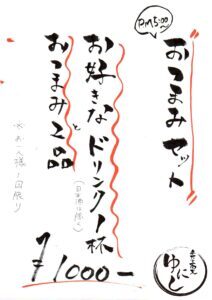 PM5:00〜
おつまみセット
お好きなドリンク1杯
(日本酒は除く)
と
おつまみ2品
¥1000−
※お一人様1回限り